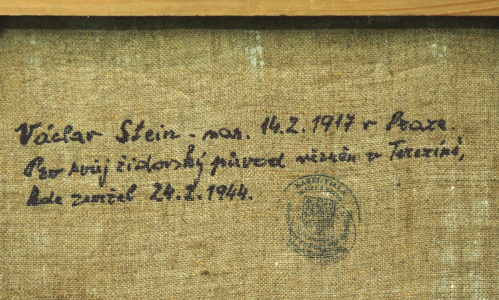 Václav Stein - nar. 14.2.1917 v Praze.
Pro svůj židovský původ vězněn v Terezíně,
kde zemřel 24.2.1944.